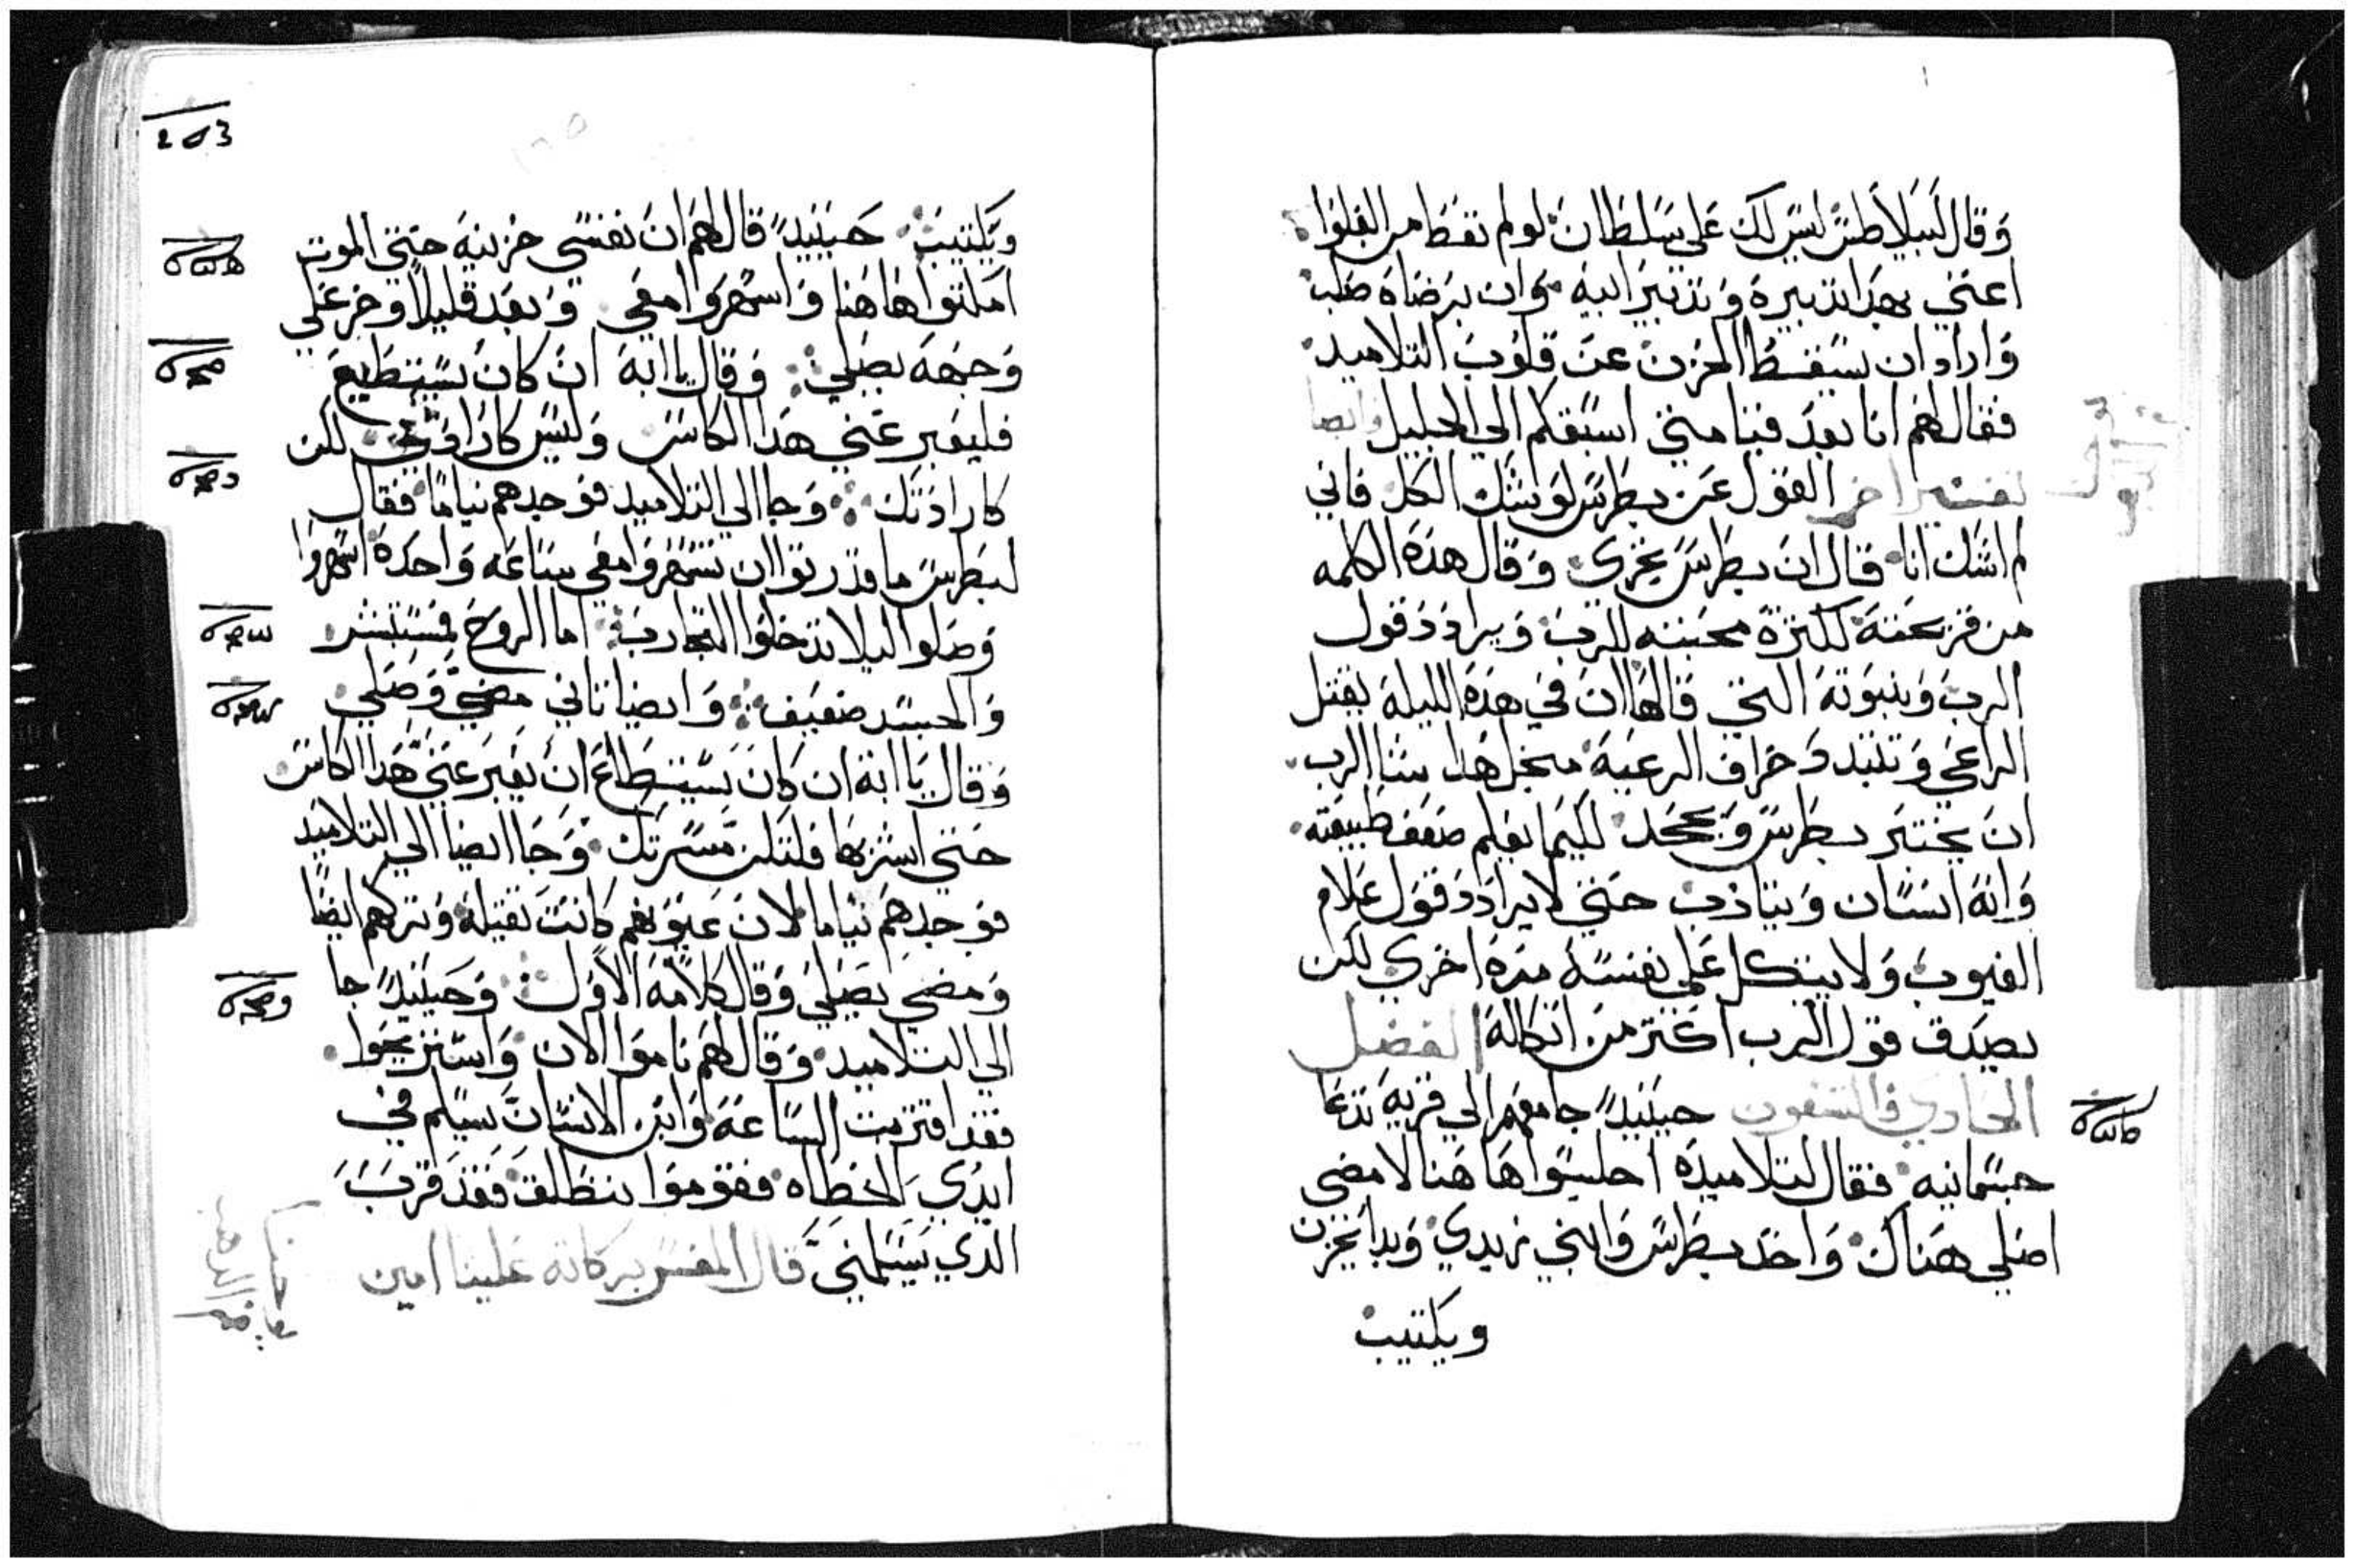 وقال لبيلاطس ليس لك على سلطان لو لم تعط من العلوا
اعني بهذا تدبيره وتدبير ابيه وان برضاه صلب
واراد ان يسقط الحزن عن قلوب التلاميد
فقال لهم انا بعد قيامتي اسبقكم الي الجليل وايضا
تفسير اخر القول عن بطرس لو يشك الكل فاني
لم اشك انا قال ان بطرس يخزي وقال هده الكلمه
من قريحته لكثرة محبته للرب ويرادد قول
الرب وبنبوته التي قالها ان في هده الليله يقتل
الراعي وتتبدد خراف الرعيه منجل هدا شا الرب
ان يختبر بطرس ويجحد لكيما يعلم ضعف طبيعته
وانه انسان ويتادب حتي لا يرادد قول علام
الغيوب ولا يتكل علي نفسه مره اخري لكن
يصدق قول الرب اكتر من اتكاله الفصل
الحادي والتسعون حينيدٍ جا معهم الي قرية تدعا
جسمانيه فقال لتلاميده اجلسوا هاهنا لامضي
اصلي هناك واخد بطرس وابني زبدي وبدا يحزن
ويكتيب
203
ويكتيب حينيدٍ قال لهم ان نفسي حزينه حتي الموت
امكتوا هاهنا واسهروا معي وبعد قليلاً وخر علي
وجهه يصلي وقال يا ابه ان كان يستطيع
فليعبر عني هدا الكاس وليس كارادتي لكن
كارادتك وجا الي التلاميد فوجدهم نياماً فقال
لبطرس ما قدرتوا ان تسهروا معي ساعه واحده اسهروا
وصلوا ليلا تدخلوا التجارب اما الروح فمستبشر
والجسد ضعيف وايضا تاني مضي وصلي
وقال يا ابه ان كان يستطاع ان يعبر عني هدا الكاس
حتي اشربها فلتكن مسرتك وجا ايضا الي التلاميد
فوجدهم نياما لان عيونهم كانت تقيله وتركهم ايضاً
ومضي يصلي وقال كلامه الاول وحينيدٍ جا
الي التلاميد وقال لهم ناموا الان واستريحوا
فقد اقتربت الساعه وابن الانسان يسلم في
ايدي الخطاه فقوموا ننطلق فقد قرب
الدي يسلمني قال المفسر بركاته علينا امين